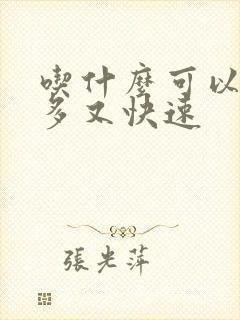 喫什麼可以
多又快速
張光萍